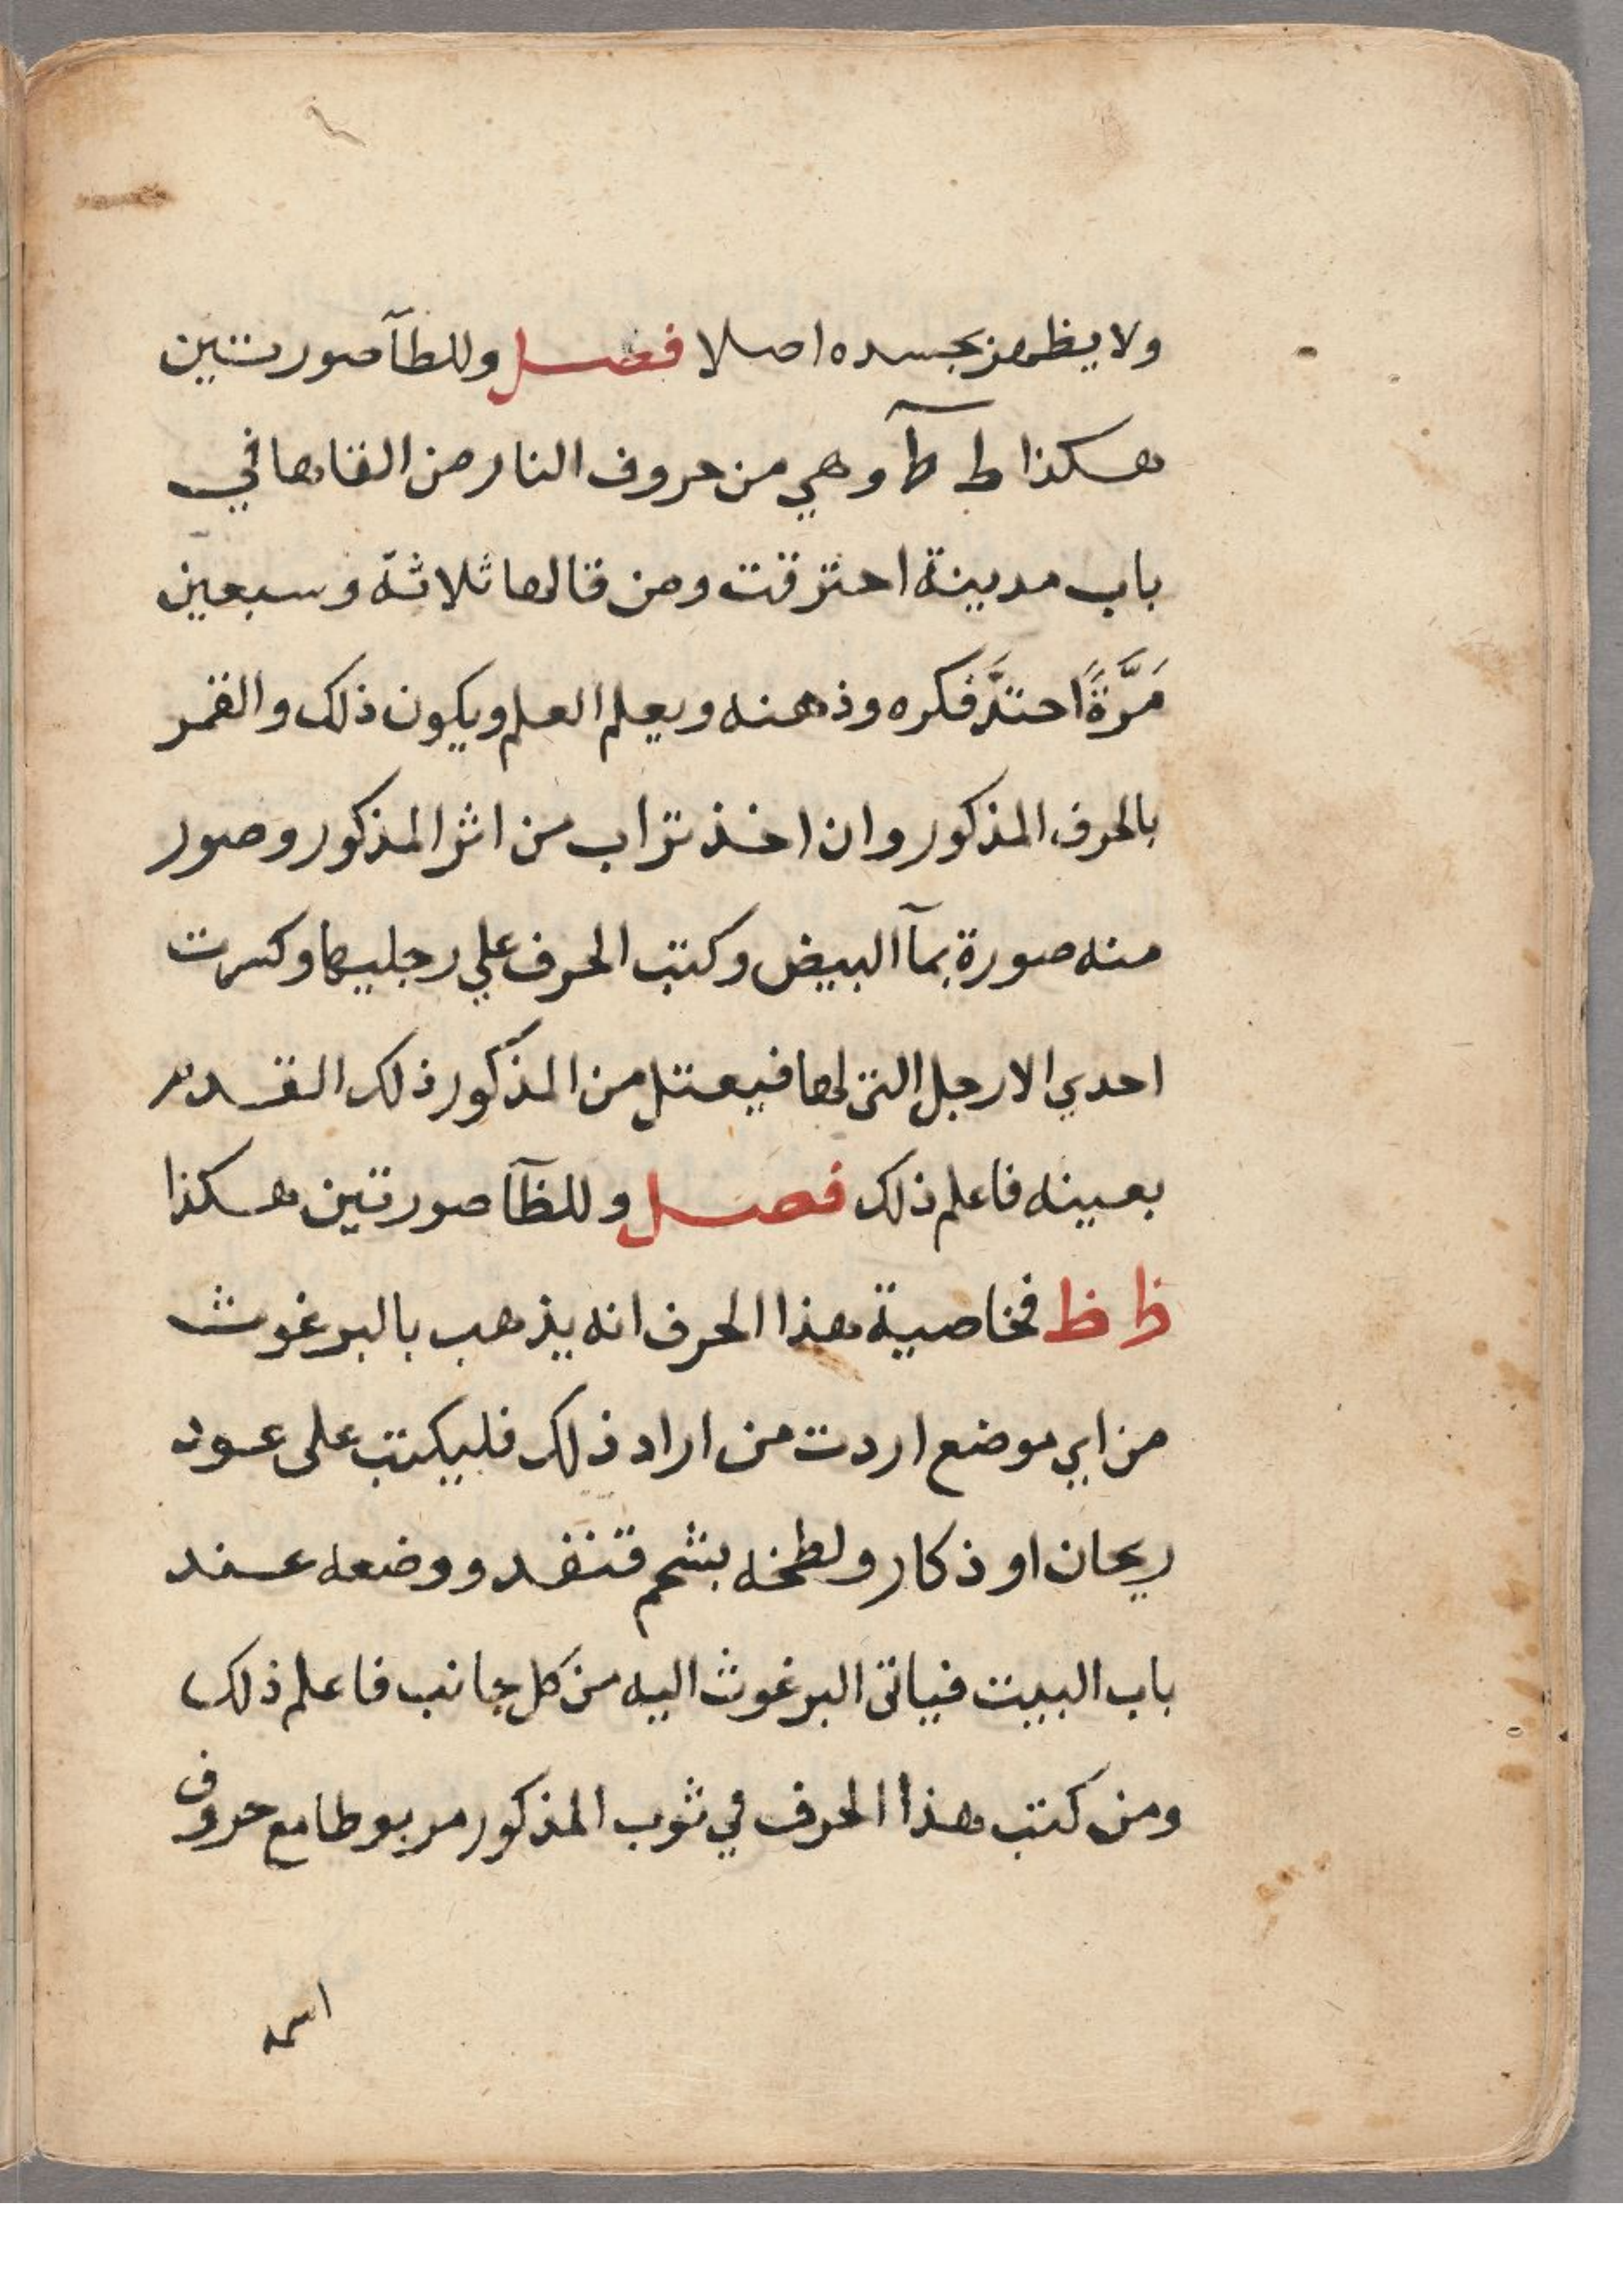 ولا يظهر بجسده اصلا فصل وللطآ صورتين
هكذا ط ط وهي من حروف النار من القاها في
باب مدينة احترقت ومن قالها ثلاثة وسبعين
مَرَّةً احتدَّ فكره وذهنه ويعلم العلم ويكون ذلك والقمر
بالحرف المذكور وان اخذ تراب من اثر المذكور وصور
منه صورة بمآ البيض وكتب الحرف علي رجليها وكسرت
احدي الارجل التي لها فيعتل من المذكور ذلك القدم
بعينه فاعلم ذلك فصل وللظآ صورتين هكذا
ظ ظ فخاصية هذا الحرف انه يذهب بالبرغوث
من اي موضع اردت من اراد ذلك فليكتب على عود
ريحان او ذكار ولطخه بشحم قنفد ووضعه عند
باب البيت فياتي البرغوث اليه من كل جانب فاعلم ذلك
ومن كتب هذا الحرف في ثوب المذكور مربوطا مع حروف
اسمه